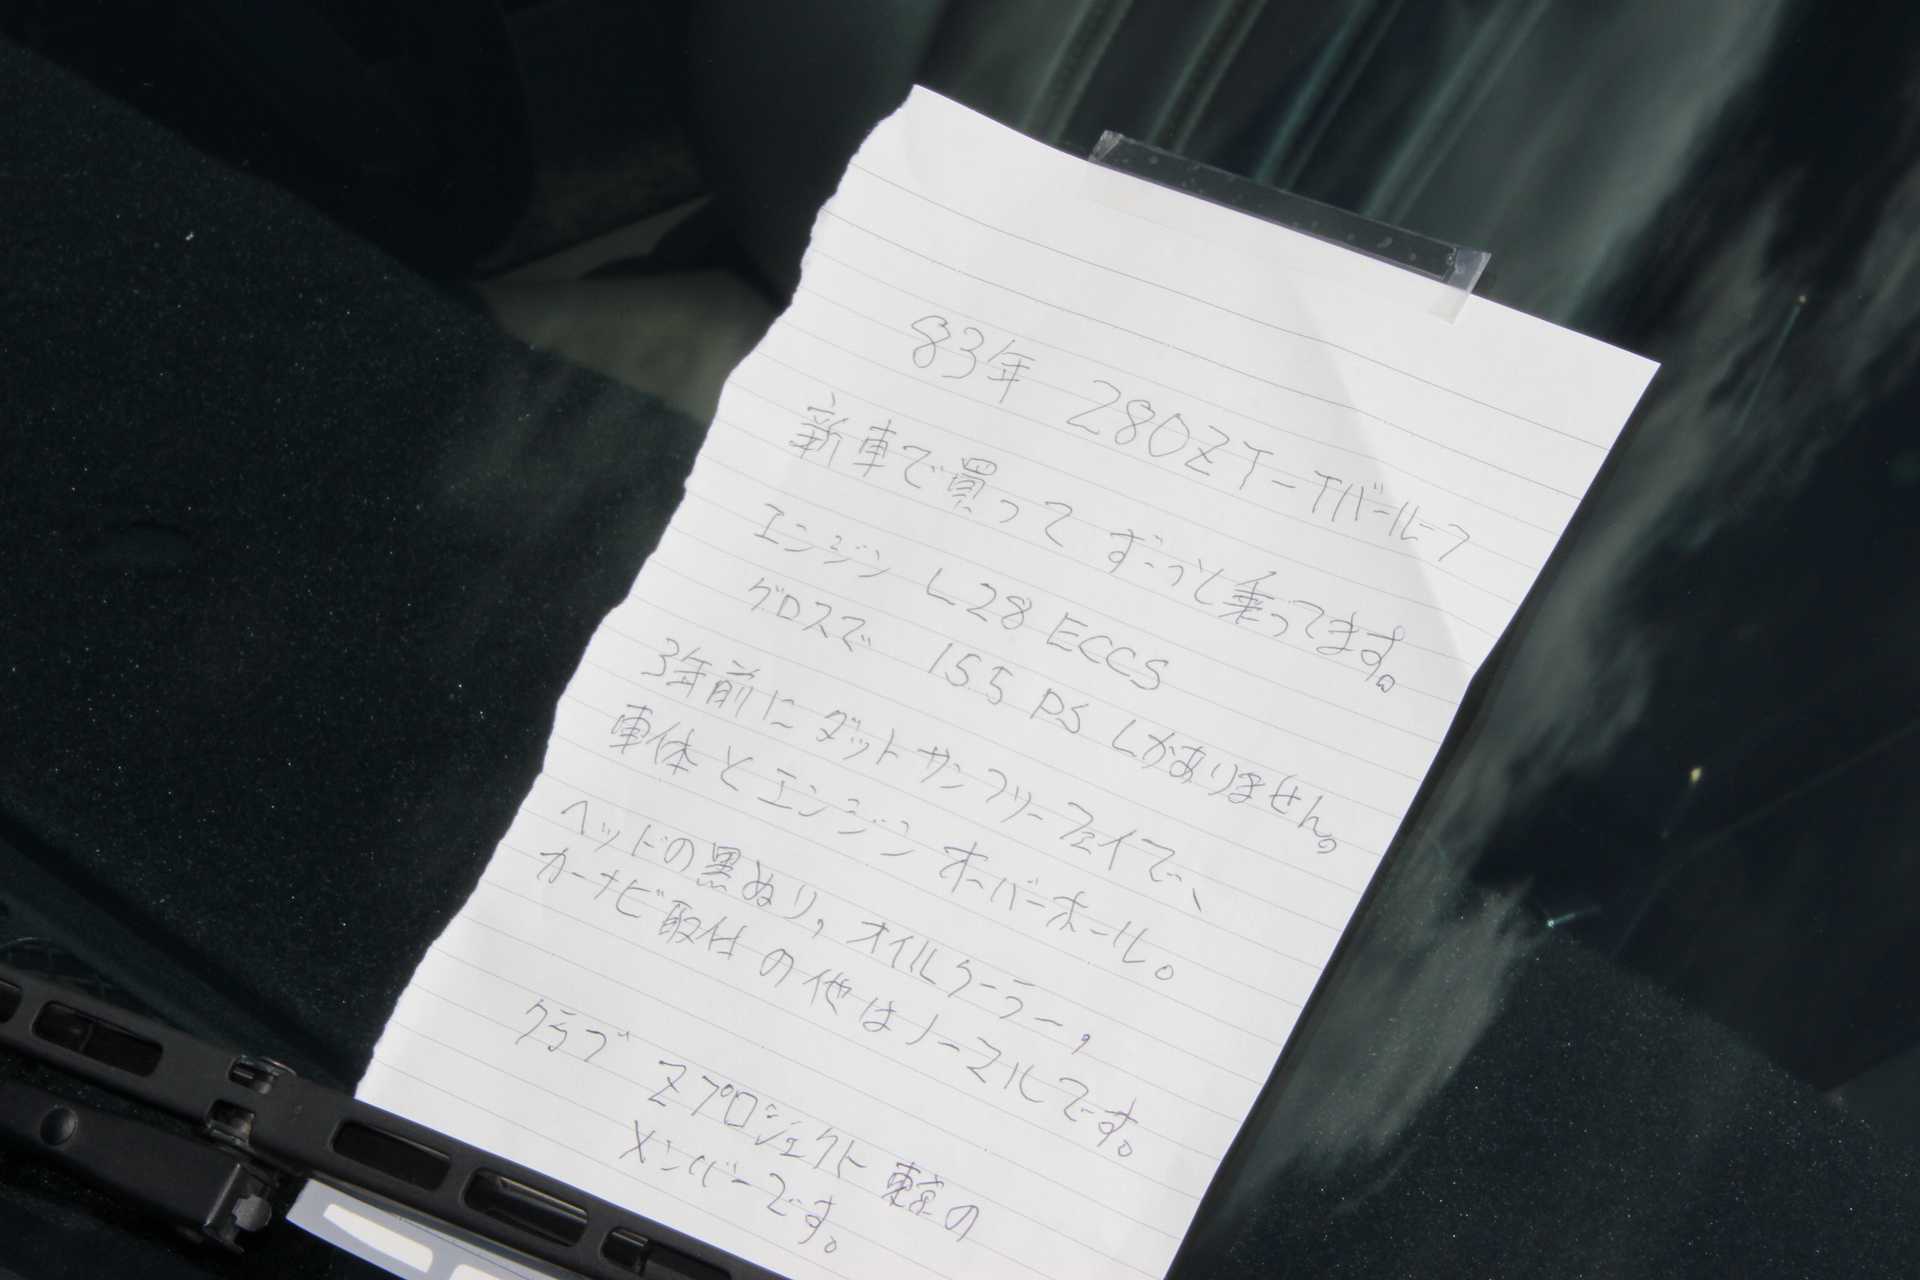 83年 280ZT-Tバールーフ
新車で買って ずーっと乗ってます。
エンジン L28 ECCS
グロスで 155 PS しかありません。
3年前に ダットサンフリーフェイで、
車体とエンジン オーバーホール。
ヘッドの黒ぬり, オイルクーラー,
カーナビ取付の他はノーマルです。
クラブ Zプロジェクト東京の
メンバーです。